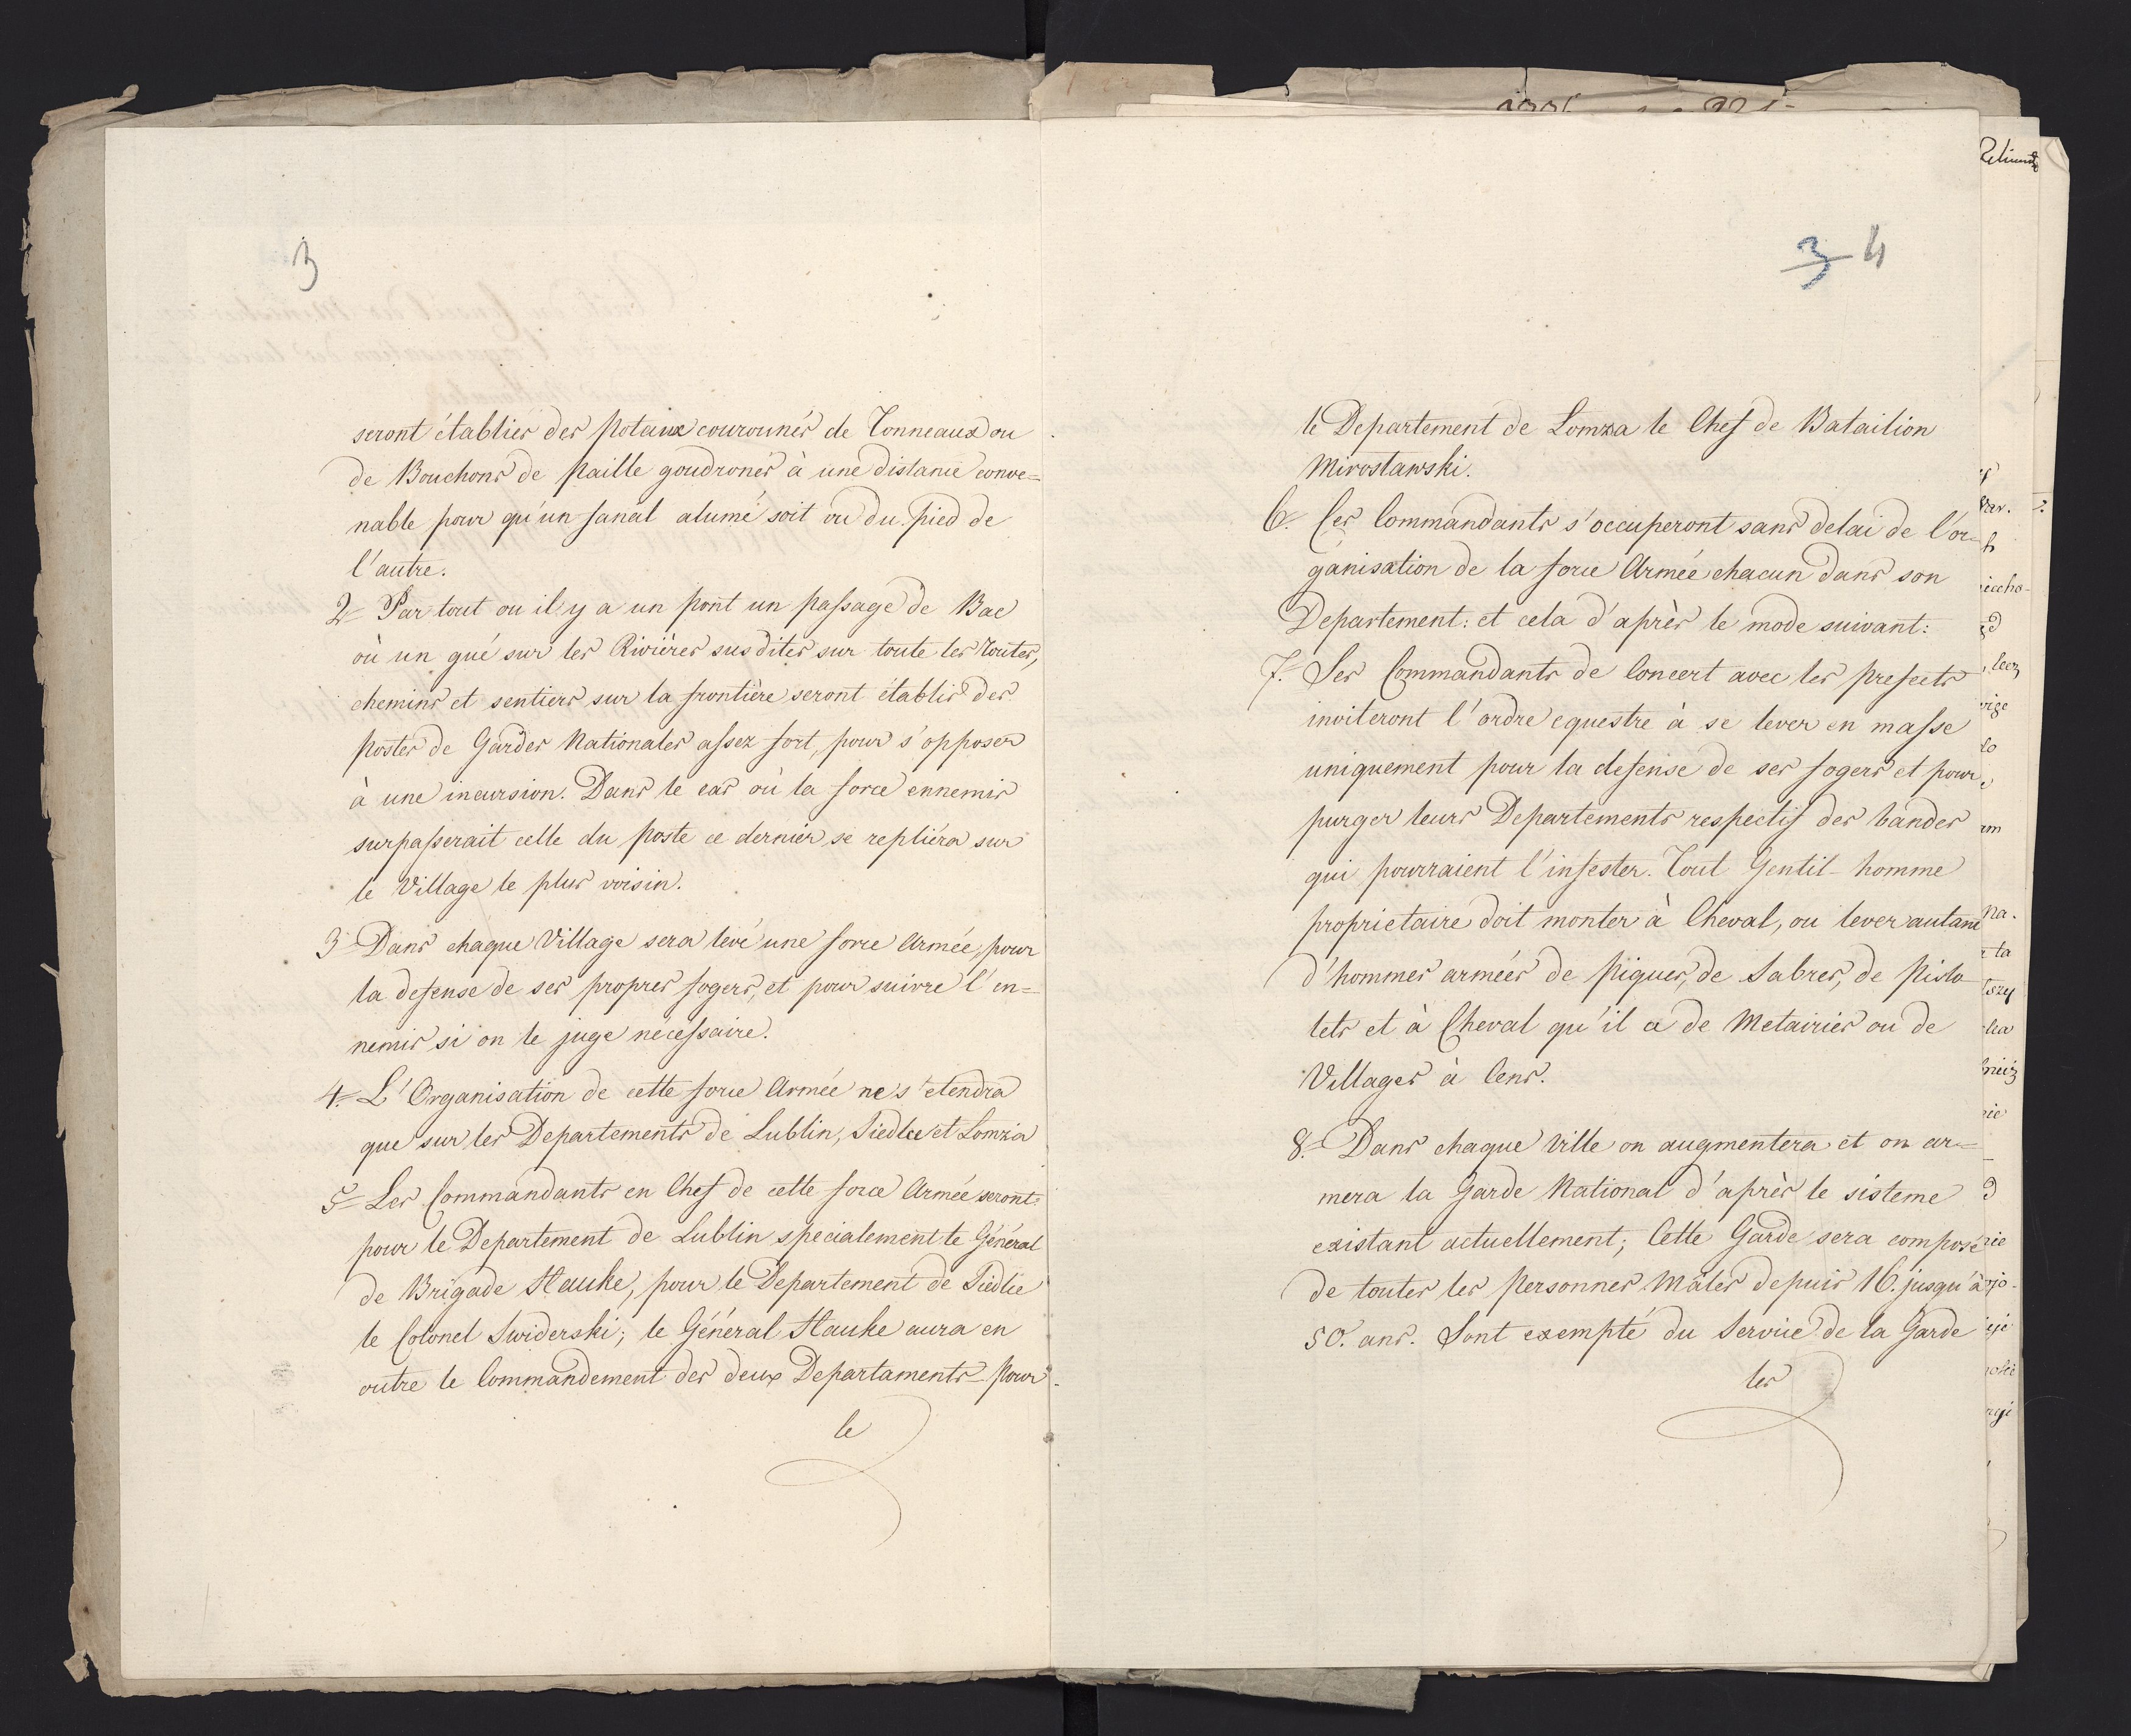 3
seront établies des poteaux couronnés de Tonneaux ou
de Bouchons de paille goudronés à une distance conve=
nable pour qu'un fanal alumé soit vu du pied de
l'autre.
2 Par tout ou il y a un pont un passage de Bac
où un gué sur les Rivières susdites sur toute les routes,
chemins et sentiers sur la frontière seront établis des
postes de Gardes Nationales assez fort, pour s'opposer
à une incursion. Dans le cas où la force ennemis
surpasserait celle du poste ce dernier se repliéra sur
le Village le plus voisin.
3 Dans chaque Village sera levé une force Armée, pour
la defense de ses propres fogers, et pour suivre l'en=
nemis si on le juge nécessaire.
4. L'Organisation de cette force Armée ne s'etendra
que sur les Departements de Lublin, Siedlce et Lomzia
5 Les Commandants en Chef de cette force Armée seront:
pour le Departement de Lublin specialement le Général
de Brigade Hauke, pour le Departement de Siedlie
le Colonel Swiderski; le Général Hauke aura en
outre le Commandement des deux Departaments pour
le
3 4
le Departement de Lomza le Chef de Batailion
Mirosławski.
6. Ces Commandants s'occuperont sans delai de l'or=
ganisation de la force Armée chacun dans son
Departement: et cela d'après le mode suivant:
7. Les Commandants de Concert avec les prefects
inviteront l'ordre equestre à se lever en masse
uniquement pour la defense de ses fogers et pour
purger leurs Departements respectif des bandes
qui pourraient l'infester. Tout Gentil-homme
proprietaire doit monter à Cheval, ou lever autant
d'hommes armées de piques, de Sabres, de Pisto
lets et à Cheval qu'il a de Metairies ou de
Villages à Cens.
8. Dans chaque Ville on augmentera et on ar=
mera la Garde National d'après le sisteme
existant actuellement; Cette Garde sera composé
de toutes les Personnes Mâles depuis 16. jusqu'à
50. ans. Sont exempté du Service de la Garde
les